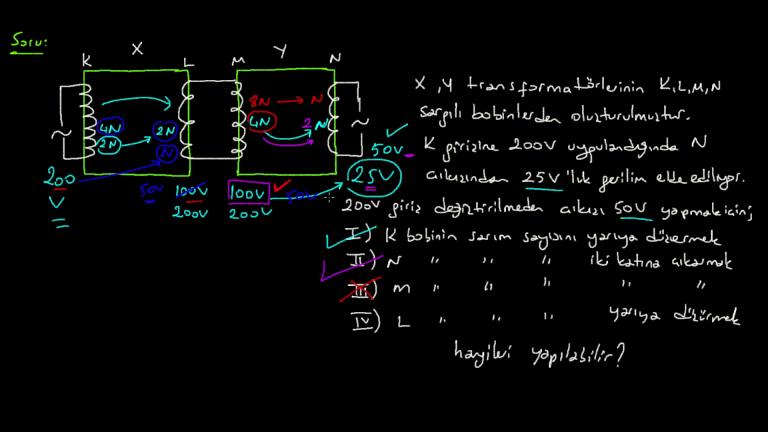 Soru:
X Y
K L M N
8N → N
4N 2N 4N 2 N
2N N
50V
200 25V
V
50V 100V 100V 50V
200V 200V
X, Y transformatörlerinin K, L, M, N
sargılı bobinlerden oluşturulmuştur.
K girişine 200V uygulandığında N
çıkışından 25V'luk gerilim elde ediliyor.
200V giriş değiştirilmeden çıkışı 50V yapmak için;
I) K bobinin sarım sayısını yarıya düşürmek
II) N " " " iki katına çıkarmak
III) M " " " " "
IV) L " " " yarıya düşürmek
hangileri yapılabilir?